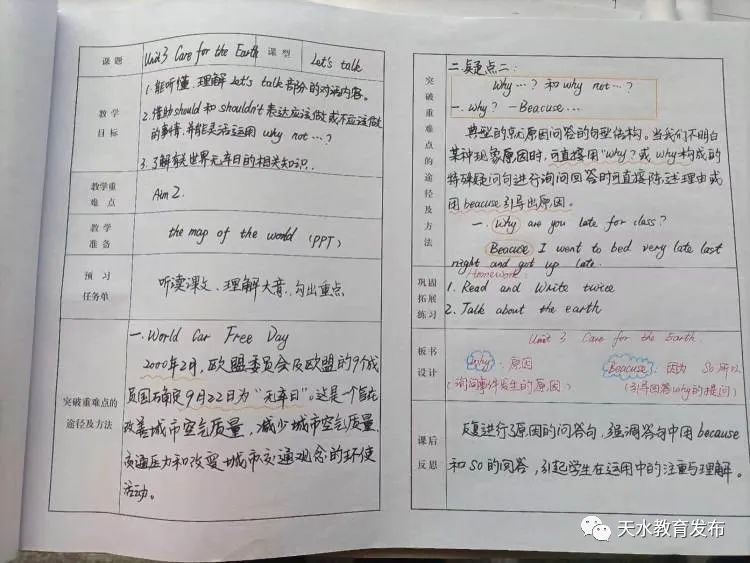 课题 Unit 3 Care for the Earth 课型 Let's talk
教学目标
1.能听懂、理解 Let's talk 部分的对话内容。
2.借助should 和 shouldn't 表达应该做或不应该做
的事情,并能灵活运用 why not …?
3.了解有关世界无车日的相关知识.
教学重难点
Aim 2.
教学准备
the map of the world (PPT)
预习任务单
听读课文、理解大意、勾出重点
突破重难点的
途径及方法
一. World Car Free Day
2000年2月,欧盟委员会及欧盟的9个成
员国确定9月22日为“无车日”。这是一个旨在
改善城市空气质量,减少城市空气质量、
交通压力和改变城市交通观念的环使
活动。
突破重难点的途径及方法
二.疑点二:
Why …? 和 why not …?
一. Why? - Beacuse …
典型的就原因问答的句型结构。当我们不明白
某种现象原因时,可直接用"why?或 why构成的
特殊疑问句进行询问回答时可直接陈述理由或
用 beacuse 引导出原因。
一. Why are you late for class?
Beacuse I went to bed very late last
night and got up late.
巩固
拓展
练习
Homework:
1. Read and Write twice
2. Talk about the earth
板书
设计
Unit 3 Care for the Earth.
Why : 原因 Beacuse : 因为 So 所以
(询问事件发生的原因) (引导回答why的提问)
课后
反思
反复进行了原因的问答句,强调答句中用 because
和 so 的回答,引起学生在运用中的注重与理解。
天水教育发布